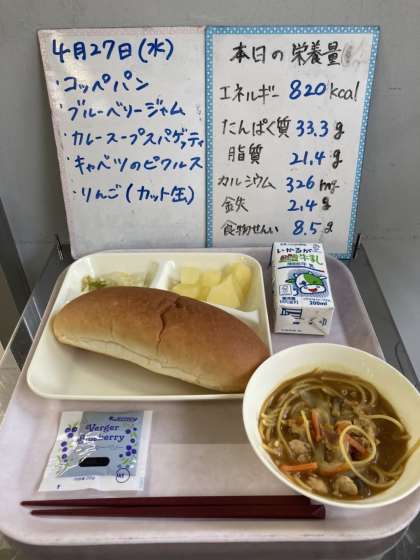 4月27日(水)
・コッペパン
・ブルーベリージャム
・カレースープスパゲッティ
・キャベツのピクルス
・りんご(カット缶)
本日の栄養量
エネルギー 820kcal
たんぱく質 33.3g
脂質 21.4g
カルシウム 326mg
鉄 2.4g
食物せんい 8.5g
いかるが
牛乳
200ml
Verger
Blueberry